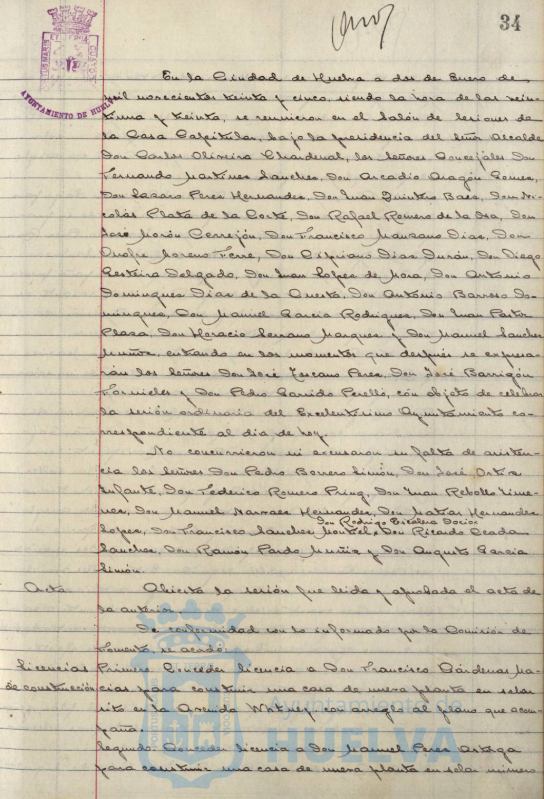 34
AYUNTAMIENTO DE HUELVA
En la Ciudad de Huelva a dos de Enero de
mil novecientos treinta y cinco, siendo la hora de las vein-
tiuna y treinta, se reunieron en el Salón de Sesiones de
la Casa Capitular, bajo la presidencia del Señor Alcalde
Don Carlos Oliveira Chardenal, los Señores Concejales Don
Fernando Martínez Sánchez, Don Arcadio Aragón Gómez,
Don Lázaro Pérez Hernández, Don Juan Quintero Baez, Don Ni-
colás Plata de la Corte, Don Rafael Romero de la Osa, Don
José Morón Cerrejón, Don Francisco Manzano Díaz, Don
Onofre Moreno Ferre, Don Cipriano Díaz Durán, Don Diego
Gesteira Delgado, Don Juan López de Mora, Don Antonio
Domínguez Díaz de la Cuesta, Don Antonio Barroso Do-
mínguez, Don Manuel García Rodríguez, Don Juan Pastor
Plaza, Don Horacio Serrano Márquez y Don Manuel Sánchez
Muñoz, entrando en los momentos que después se expresa-
rán los Señores Don José Toscano Pérez, Don José Barrigón
Fornieles y Don Pedro Garrido Perelló, con objeto de celebrar
la sesión ordinaria del Excelentísimo Ayuntamiento co-
rrespondiente al día de hoy.
No concurrieron ni excusaron su falta de asisten-
cia los Señores Don Pedro Borrero Limón, Don José Ortiz
Infante, Don Federico Romero Don Juan Rebollo Jime-
nez, Don Manuel Narvaez Hernández, Don Matías Hernández
Don Rodrigo
López, Don Francisco Sánchez Don Ricardo Terada
Sánchez, Don Ramón Pardo Muñiz y Don Augusto García
Limón.
Acta Abierta la sesión fue leida y aprobada el acta de
la anterior.
De conformidad con lo informado por la Comisión de
Fomento, se acordó:
Licencias Primero. Conceder licencia a Don Francisco Cárdenas Ma-
de construcción cías para construir una casa de nueva planta en solar
sito en la Avenida Whitney con arreglo al plano que acom-
paña.
Segundo. Conceder licencia a Don Manuel Pérez Astoga
para construir una casa de nueva planta en solar número
Ayuntamiento de
HUELVA